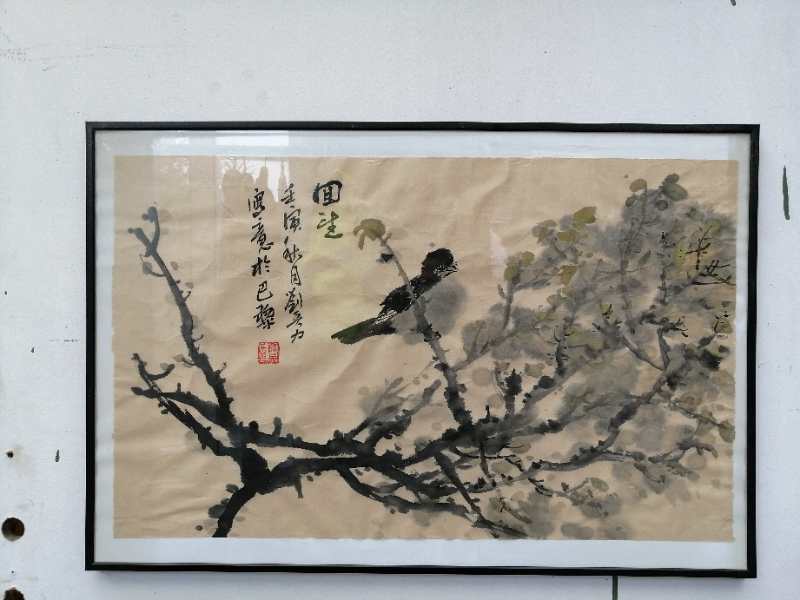 回望
壬寅秋月劉力
寫意於巴黎